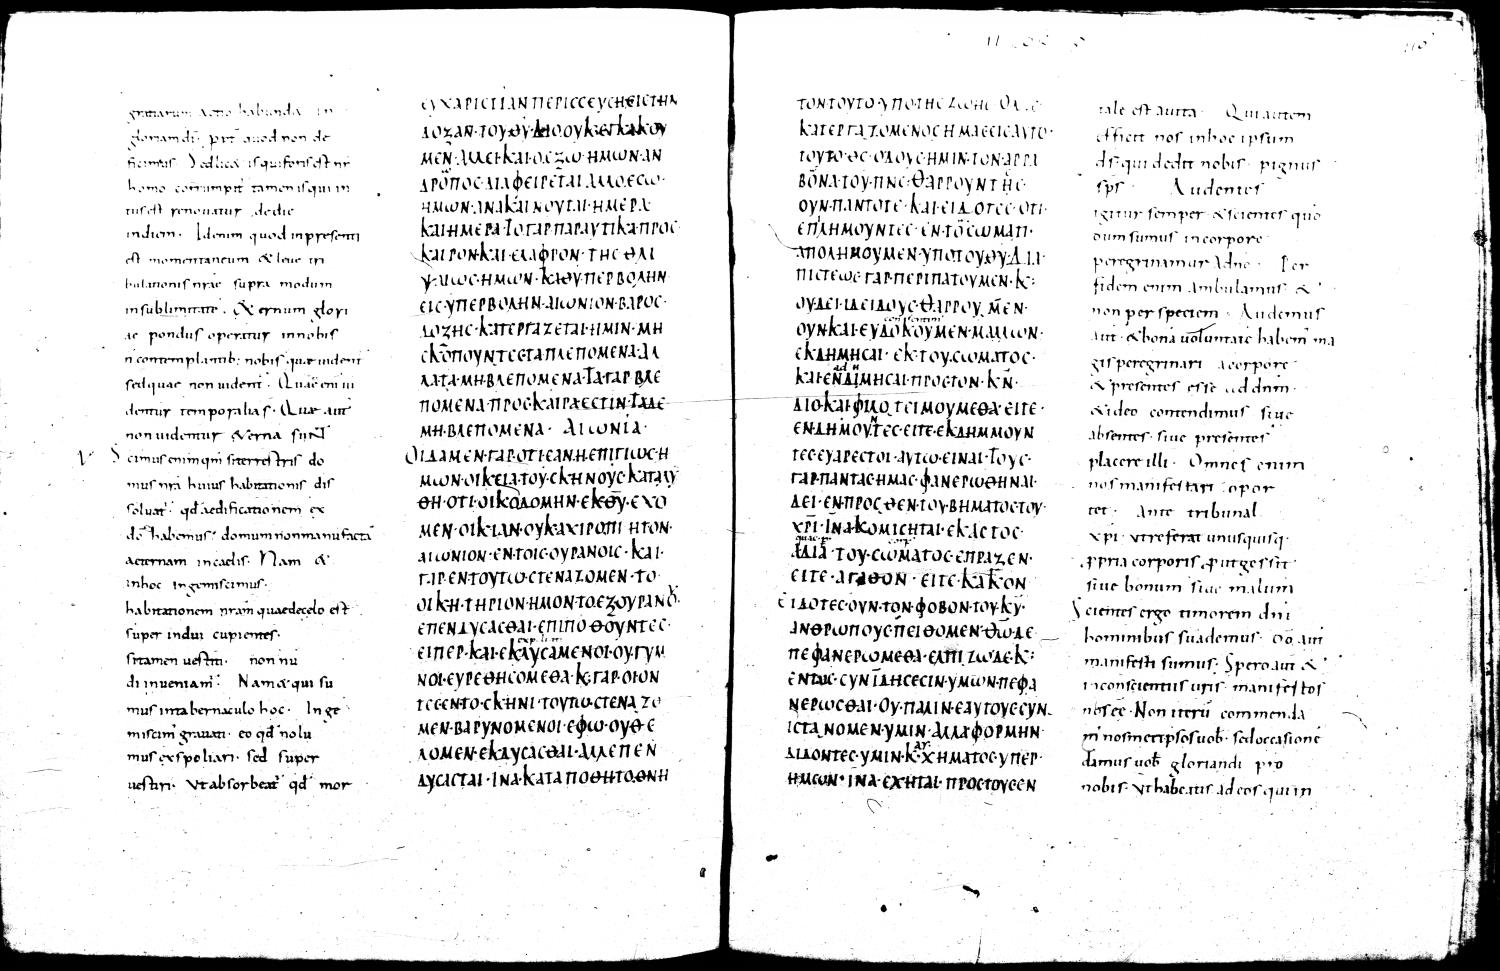 gratiarum actio habunda in
gloriam dī. pr̄t quod non de
ficimus. Sed licæ is qui foris est nr̄
homo corrumpit tamen is qui in
tus est renouatur de die
in diem. Id enim quod in presenti
est momentaneum & leue tri
bulationis nrae supra modum
in sublimitate. & ernum glori
ae pondus operatur in nobis
n contemplantib; nobis quae uident
sed quae non uident. Quae eni ui
dentur temporalia s. Quae aut
non uidentur & erna sunt
Scimus enim qm si terrestris do
mus nra huius habitationis dis
soluat. qd aedificationem ex
dō habemus. domum non manu facta
aeternam in caelis. Nam &
in hoc ingemiscimus.
habitationem nram quae de celo est
super indui cupientes.
si tamen uestiti. non nu
di inueniam. Nam & qui su
mus in tabernaculo hoc. Inge
miscim grauati. eo qd nolu
mus exspoliari. sed super
uestiri. ut absorbeat qd mor
ΕΥΧΑΡΙCΤΙΑΝ ΠΕΡΙCCΕΥCΗ ΕΙC ΤΗΝ
ΔΟΞΑΝ·ΤΟΥ ΘΥ ΔΙΟ ΟΥΚ ΕΓΚΑΚΟΥ
ΜΕΝ·ΑΛΛΕΙ·ΚΑΙ·Ο ΕΞΩ·ΗΜΩΝ·ΑΝ
ΔΡΟΠΟC·ΔΙΑΦΕΙΡΕΤΑΙ ΑΛΛΟ ΕCΩ·
ΗΜΩΝ·ΑΝΑΚΑΙΝΟΥΤΑΙ·ΗΜΕΡΑ·
ΚΑΙ ΗΜΕΡΑ·ΤΟ ΓΑΡ ΠΑΡΑΥΤΙΚΑ·ΠΡΟC
ΚΑΙΡΟΝ·ΚΑΙ·ΕΛΑΦΡΟΝ·ΤΗC ΘΛΙ
ΨΑΙΩC·ΗΜΩΝ·ΚΑΘΥΠΕΡΒΟΛΗΝ
ΕΙC·ΥΠΕΡΒΟΛΗΝ·ΑΙΩΝΙΟΝ·ΒΑΡΟC·
ΔΟΞΗC·ΚΑΤΕΡΓΑΖΕΤΑΙ·ΗΜΙΝ·ΜΗ
CΚΟΠΟΥΝΤΕC·ΤΑ ΠΛΕΠΟΜΕΝΑ·ΑΛ
ΛΑΤΑ·ΜΗ·ΒΛΕΠΟΜΕΝΑ·ΤΑ ΓΑΡ ΒΛΕ
ΠΟΜΕΝΑ·ΠΡΟCΚΑΙΡΑ ΕCΤΙΝ·ΤΑ ΔΕ
ΜΗ·ΒΛΕΠΟΜΕΝΑ· ΑΙΩΝΙΑ·
ΟΙΔΑΜΕΝ·ΓΑΡ·ΟΤΙ·ΕΑΝ·Η ΕΠΙΓΙΩC·Η
ΜΩΝ·ΟΙΚΕΙΑ·ΤΟΥ·CΚΗΝΟΥC·ΚΑΤΑΛΥ
ΘΗ·ΟΤΙ·ΟΙΚΟΔΟΜΗΝ·ΕΚ ΘΥ·ΕΧΟ
ΜΕΝ·ΟΙΚΙΑΝ·ΟΥΚ ΑΧΙΡΟΠΙΗΤΟΝ·
ΑΙΩΝΙΟΝ·ΕΝ·ΤΟΙC·ΟΥΡΑΝΟΙC·ΚΑΙ·
ΓΑΡ·ΕΝ·ΤΟΥΤΩ·CΤΕΝΑΖΟΜΕΝ·ΤΟ·
ΟΙΚΗΤΗΡΙΟΝ·ΗΜΟΝ·ΤΟ ΕΞ ΟΥΡΑΝΟΥ·
ΕΠΕΝΔΥCΑCΘΑΙ·ΕΠΙΠΟΘΟΥΝΤΕC·
ΕΙΠΕΡ·ΚΑΙ·ΕΚΛΥCΑΜΕΝΟΙ·ΟΥ·ΓΥΜ
ΝΟΙ·ΕΥΡΕΘΗCΟΜΕΘΑ·Κ·ΓΑΡ·ΟΙ ΟΝ
ΤΕC ΕΝ·ΤΟ·CΚΗΝΙ·ΤΟΥΤΩ·CΤΕΝΑΖΟ
ΜΕΝ·ΒΑΡΥΝΟΜΕΝΟΙ·ΕΦΩ·ΟΥ·ΘΕ
ΛΟΜΕΝ·ΕΚΔΥCΑCΘΑΙ·ΑΛΛ ΕΠΕΝ
ΔΥCΑCΤΑΙ·ΙΝΑ·ΚΑΤΑΠΟΘΗ ΤΟ ΘΝΗ
ΤΟΝ·ΤΟΥΤΟ·ΥΠΟ ΤΗC ΖΩΗC Ο ΔΕ
ΚΑΤΕΡΓΑΖΟΜΕΝΟC ΗΜΑC ΕΙC ΑΥΤΟ·
ΤΟΥΤΟ·ΘC·Ο ΔΟΥC·ΗΜΙΝ·ΤΟΝ·ΑΡΡΑ
ΒΟΝΑ·ΤΟΥ·ΠΝC·ΘΑΡΡΟΥΝΤΗC·
ΟΥΝ·ΠΑΝΤΟΤΕ·ΚΑΙ·ΕΙΔΟΤΕC·ΟΤΙ·
ΕΠΔΗΜΟΥΝΤΕC·ΕΝ·ΤΟ CΩΜΑΤΙ·
ΑΠΟΔΗΜΟΥΜΕΝ·ΥΠΟ ΤΟΥ ΘΥ ΔΙΑ·
ΠΙCΤΕΩC·ΓΑΡ·ΠΕΡΙΠΑΤΟΥΜΕΝ·Κ:
ΟΥ ΔΕΙ·ΔΕΙΔΟΥC·ΘΑΡΡΟΥΜΕΝ·
ΟΥΝ·ΚΑΙ·ΕΥΔΟΚΟΥΜΕΝ·ΜΑΛΛΟΝ·
ΕΚΔΗΜΗCΑΙ·ΕΚ·ΤΟΥ·CΩΜΑΤΟC·
ΚΑΙ·ΕΝΔΙΜΗCΑΙ·ΠΡΟC ΤΟΝ·ΚΝ·
ΔΙΟ·ΚΑΙ·ΦΙΛΟΤΕΙΜΟΥΜΕΘΑ·ΕΙΤΕ·
ΕΝΔΗΜΟΥΝΤΕC·ΕΙΤΕ·ΕΚΔΗΜΜΟΥΝ
ΤΕC·ΕΥΑΡΕCΤΟΙ·ΑΥΤΩ·ΕΙΝΑΙ·ΤΟΥC·
ΓΑΡ·ΠΑΝΤΑC·ΗΜΑC·ΦΑΝΕΡΩΘΗΝΑΙ·
ΔΕΙ·ΕΝΠΡΟCΘΕΝ·ΤΟΥ·ΒΗΜΑΤΟC·ΤΟΥ·
ΧΡΙ·ΙΝΑ·ΚΟΜΙCΗΤΑΙ·ΕΚΑCΤΟC·
ΑΔΙΑ·ΤΟΥ·CΩΜΑΤΟC·ΕΠΡΑΞΕΝ·
ΕΙΤΕ·ΑΓΑΘΟΝ·ΕΙΤΕ·ΚΑΚΟΝ
ΕΙΔΟΤΕC·ΟΥΝ·ΤΟΝ·ΦΟΒΟΝ·ΤΟΥ·ΚΥ·
ΑΝΘΡΩΠΟΥC·ΠΕΙΘΟΜΕΝ·ΘΩ·ΔΕ
ΠΕΦΑΝΕΡΩΜΕΘΑ·ΕΛΠΙΖΩ·ΔΕ·Κ:
ΕΝ ΤΑΙC·CΥΝΙΔΗCΕCΙΝ·ΥΜΩΝ·ΠΕΦΑ
ΝΕΡΩCΘΑΙ·ΟΥ·ΠΑΛΙΝ·ΕΑΥΤΟΥC CΥΝ
ΙCΤΑΝΟΜΕΝ·ΥΜΙΝ·ΑΛΛΑ ΦΟΡΜΗΝ·
ΔΙΔΟΝΤΕC·ΥΜΙΝ·ΚΑΥΧΗΜΑΤΟC·ΥΠΕΡ·
ΗΜΩΝ·ΙΝΑ·ΕΧΗΤΑΙ·ΠΡΟC ΤΟΥC ΕΝ
tale est auita. Qui autem
efficit nos in hoc ipsum
ds. qui dedit nobis pignus
sps. Audentes
igitur semper & scientes quo
dum sumus in corpore
peregrinamur a dno. Per
fidem enim ambulamus &
non per speciem. Audemus
aut. & bona uoluntate habem ma
gis peregrinari a corpore
& presentes esse ad dnm.
& ideo contendimus siue
absentes. siue presentes
placere illi. Omnes enim
nos manifestari opor
tet. Ante tribunal
xpi. ut referat unusquisq.
ppria corporis put gessit
siue bonum siue malum
Scientes ergo timorem dni
hominibus suademus. do aut
manifesti sumus. Spero aut &
in conscientiis uris. manifestos
nos eē. Non iterū commenda
m nosmetipsos uob. sed occasione
damus uob gloriandi pro
nobis. ut habeatis ad eos qui in